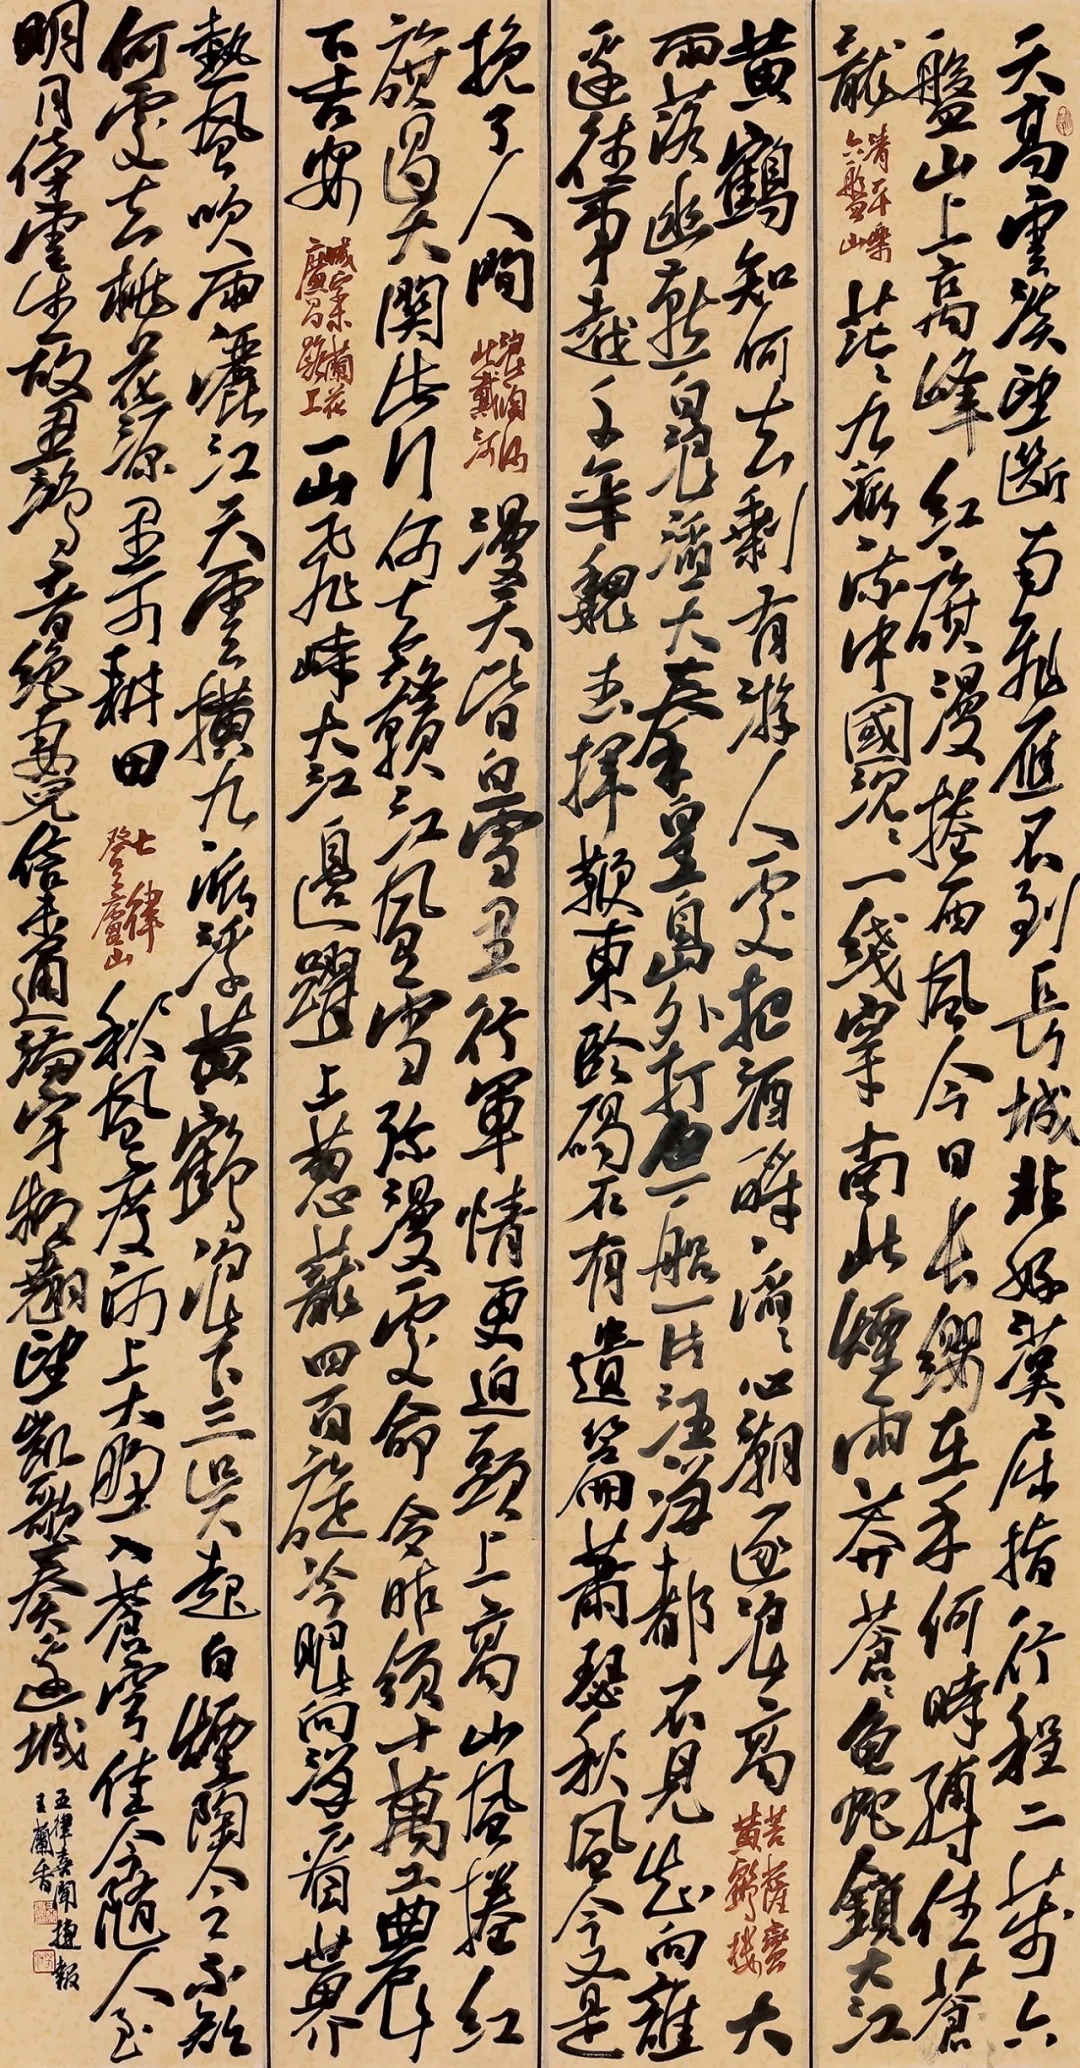 天高雲淡望斷南飛雁不到長城非好漢屈指行程二萬六
盤山上高峰紅旗漫捲西風今日長纓在手何時縛住蒼
龍
清平樂
六盤山
茫茫九派流中國沉沉一線穿南北煙雨莽蒼蒼龜蛇鎖大江
黃鶴知何去剩有游人處把酒酹滔滔心潮逐浪高
菩薩蠻
黃鶴樓
大
雨落幽燕白浪滔天秦皇島外打魚船一片汪洋都不見知向誰
邊往事越千年魏武揮鞭東臨碣石有遺篇蕭瑟秋風今又是
換了人間
浪淘沙
北戴河
漫天皆白雪里行軍情更迫頭上高山風捲紅
旗過大關此行何去贛江風雪彌漫處命令昨頒十萬工農
下吉安
減字木蘭花
廣昌路上
一山飛峙大江邊躍上蔥蘢四百旋冷眼向洋看世界
熱風吹雨灑江天雲橫九派浮黃鶴浪下三吳起白煙陶令不知
何處去桃花源里可耕田
七律
登廬山
秋風度河上大野入蒼穹佳令隨人至
明月傍雲生故里鴻音絕妻兒信未通滿宇頻翹望凱歌奏邊城
五律喜聞捷報
王蘭香